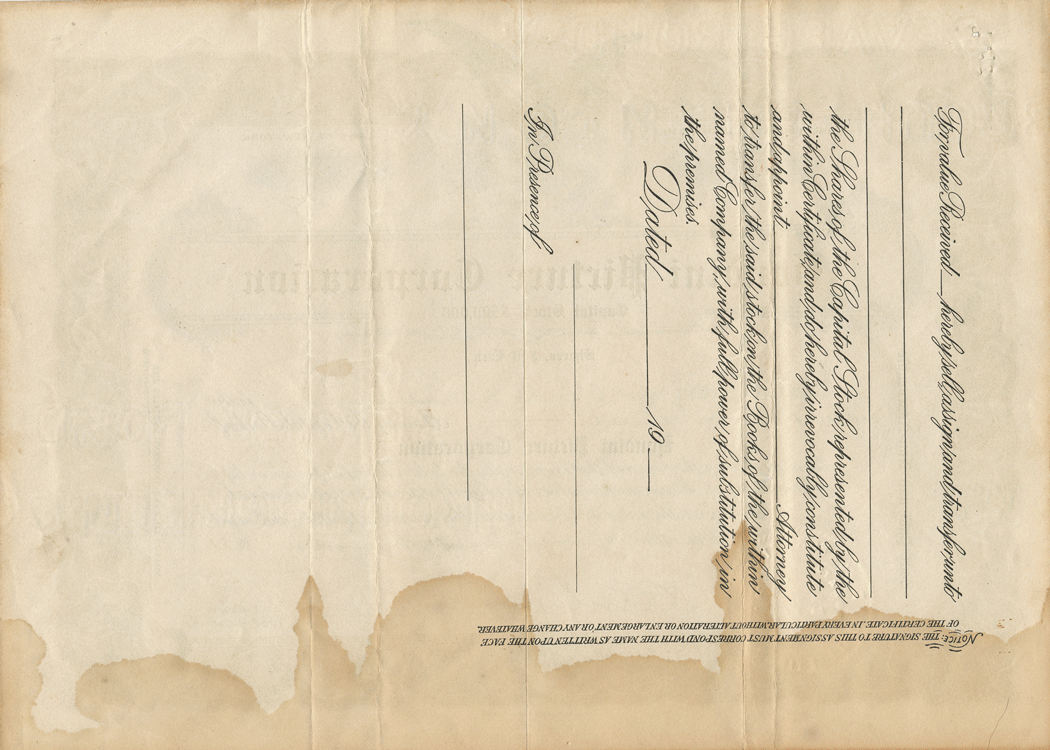 For value Received hereby sell, assign and transfer unto
the Shares of the Capital Stock represented by the
within Certificate and do hereby irrevocably constitute
and appoint
Attorney
to transfer the said stock on the Books of the within
named Company, with full power of substitution in
the premises.
Dated 19
In Presence of
NOTICE: THE SIGNATURE TO THIS ASSIGNMENT MUST CORRESPOND WITH THE NAME AS WRITTEN UPON THE FACE
OF THE CERTIFICATE, IN EVERY PARTICULAR, WITHOUT ALTERATION OR ENLARGEMENT OR ANY CHANGE WHATEVER.
Picture Corporation
Capital Stock
Houdini Picture Corporation